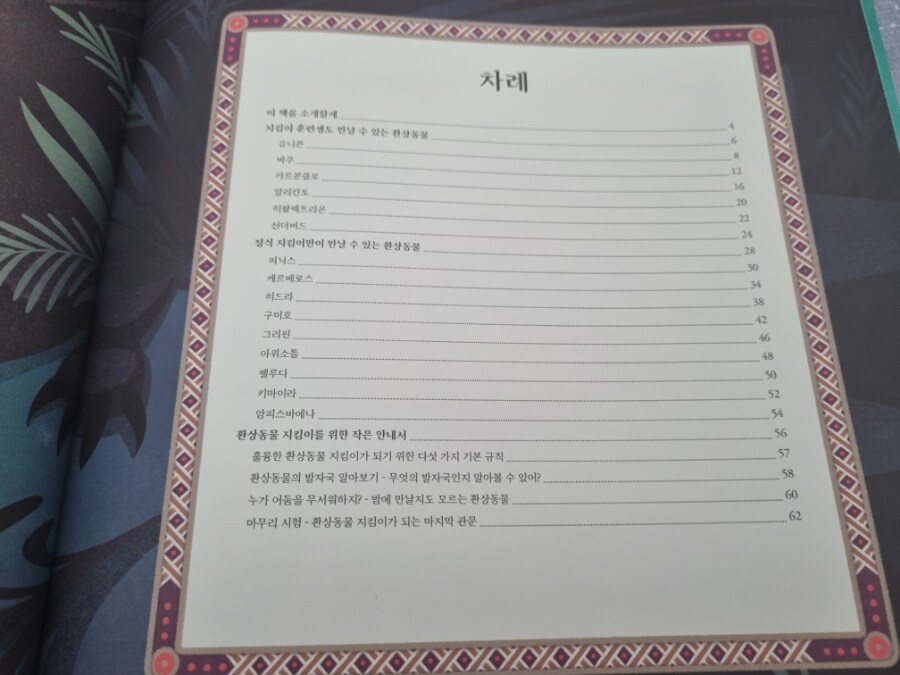 차례
이 책을 소개할게 4
지킴이 훈련생도 만날 수 있는 환상동물 6
유니콘 8
바쿠 12
카르분클로 16
알리칸토 20
히팔렉트리온 22
선더버드 24
정식 지킴이만이 만날 수 있는 환상동물 28
피닉스 30
케르베로스 34
히드라 38
구미호 42
그리핀 46
아위소틀 48
펠루다 50
키마이라 52
암피스바에나 54
환상동물 지킴이를 위한 작은 안내서 56
훌륭한 환상동물 지킴이가 되기 위한 다섯 가지 기본 규칙 57
환상동물의 발자국 알아보기 - 무엇의 발자국인지 알아볼 수 있어? 58
누가 어둠을 무서워하지? - 밤에 만날지도 모르는 환상동물 60
마무리 시험 - 환상동물 지킴이가 되는 마지막 관문 62